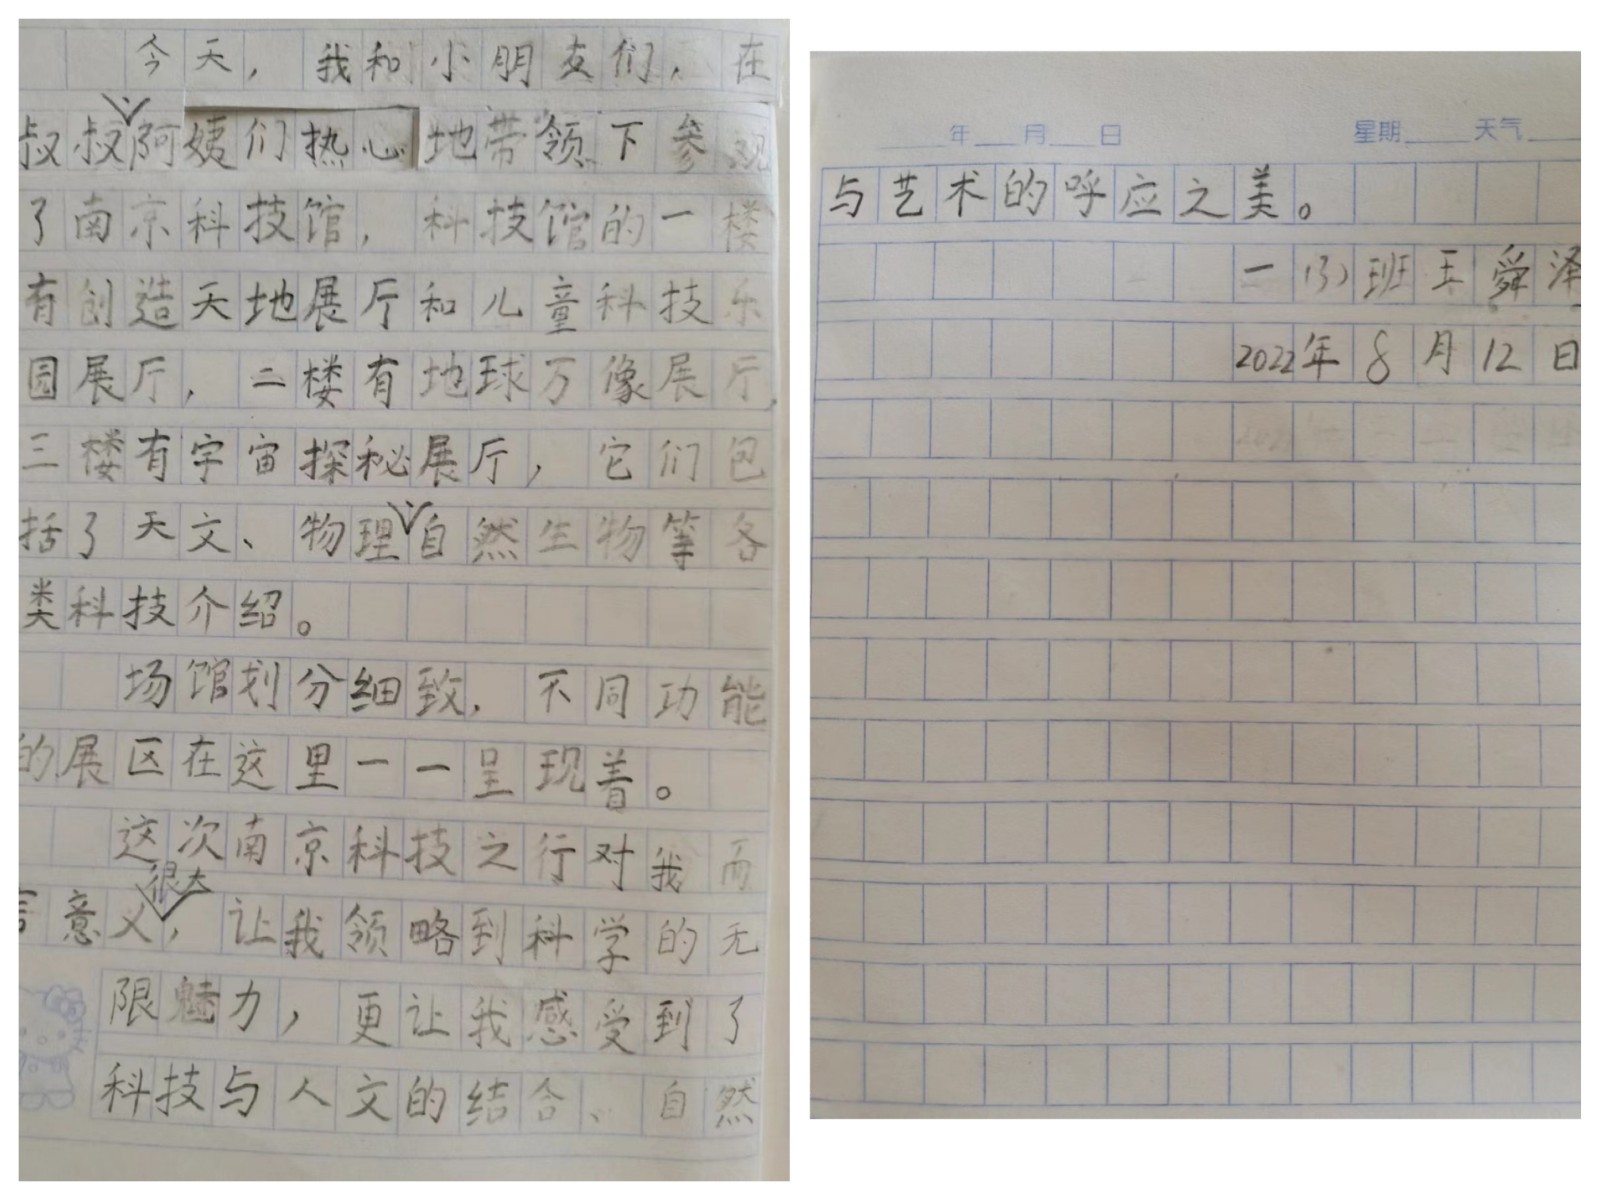 今天，我和小朋友们，在
叔叔、阿姨们热心地带领下参观
了南京科技馆，科技馆的一楼
有创造天地展厅和儿童科技乐
园展厅，二楼有地球万像展厅，
三楼有宇宙探秘展厅，它们包
括了天文、物理、自然生物等各
类科技介绍。
场馆划分细致，不同功能
的展区在这里一一呈现着。
这次南京科技之行对我而
言意义很大，让我领略到科学的无
限魅力，更让我感受到了
科技与人文的结合、自然
年 月 日 星期 天气
与艺术的呼应之美。
一(3)班王舜泽
2022年8月12日